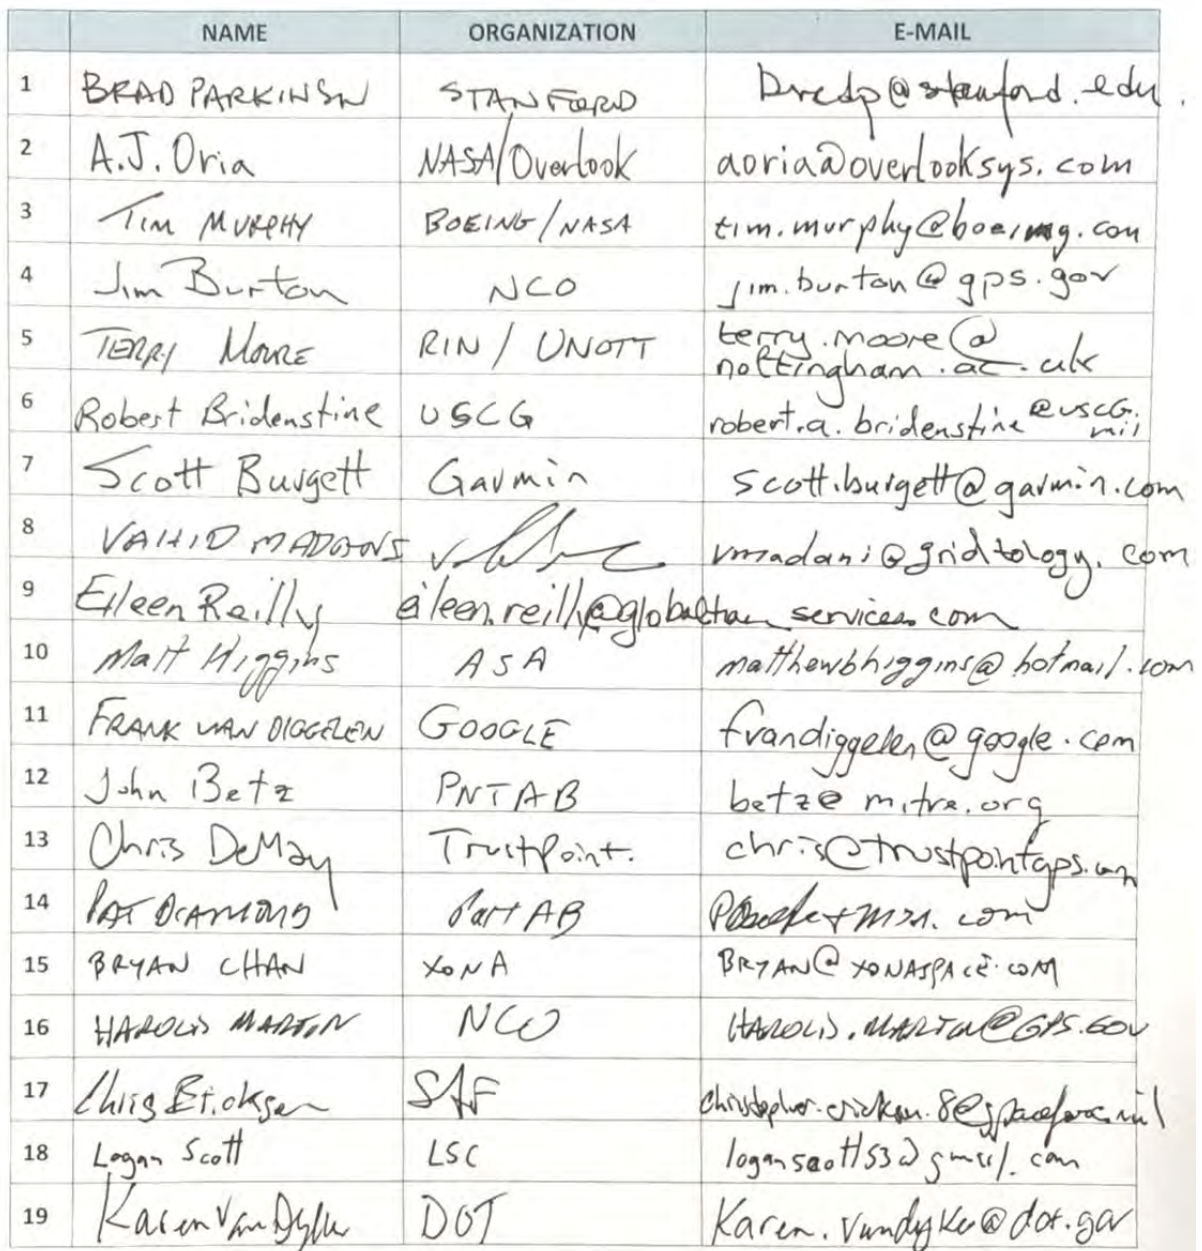 NAME ORGANIZATION E-MAIL
1 BRAD PARKINSON STANFORD @stanford.edu.
2 A.J. Oria NASA/Overlook aoria@overlooksys.com
3 Tim MURPHY BOEING/NASA tim.murphy@boeing.com
4 Jim Burton NCO jim.burton@gps.gov
5 TERRY MOORE RIN / UNOTT terry.moore@
nottingham.ac.uk
6 Robert Bridenstine USCG robert.a.bridenstine@USCG.
mil
7 Scott Burgett Garmin scott.burgett@garmin.com
8 VAHID vmadani@gridtology.com
9 Eileen Reilly
10 Matt Higgins ASA matthewbhiggins@hotmail.com
11 FRANK VAN DIGGELEN GOOGLE fvandiggelen@google.com
12 John Betz PNTAB betz@mitre.org
13 Chris DeMay TrustPoint. chris@trustpointgps.com
14 PAT DIAMOND
15 BRYAN CHAN XONA BRYAN@XONASPACE.COM
16 MARTIN NCO
17 Chris Erickson SAF christopher.erickson.8@spaceforce.mil
18 Logan Scott LSC loganscott53@gmail.com
19 Karen Van Dyke DOT Karen.vandyke@dot.gov